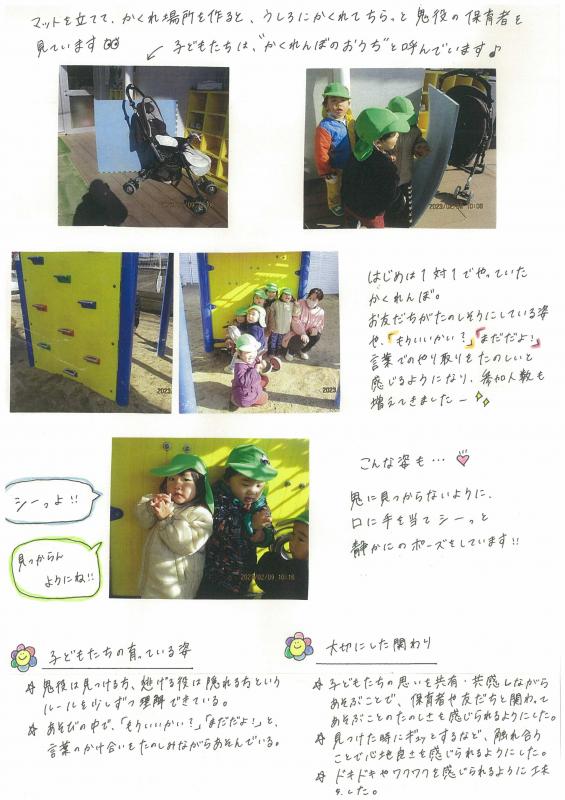 マットを立てて、かくれ場所を作ると、うしろにかくれてちらっと鬼役の保育者を
見ています
子どもたちは、"かくれんぼのおうち"と呼んでいます♪
2023/02/09 10:08
2023
2023
はじめは1対1でやっていた
かくれんぼ。
お友だちがたのしそうにしている姿
や、「もういいかい？」「まだだよ！」
言葉でのやり取りをたのしいと
感じるようになり、参加人数も
増えてきましたー
こんな姿も…
鬼に見つからないように、
口に手を当てシーっと
静かにのポーズをしています!!
シーっよ!!
見つからん
ようにね!!
2023/02/09 10:16
子どもたちの育っている姿
☆ 鬼役は見つける方、逃げる役は隠れる方という
ルールを少しずつ理解できている。
☆ あそびの中で、「もういいかい？」「まだだよ！」と、
言葉のかけ合いをたのしみながらあそんでいる。
大切にした関わり
☆ 子どもたちの思いを共有・共感しながら
あそぶことで、保育者や友だちと関わって
あそぶことのたのしさを感じられるようにした。
☆ 見つけた時にギュッとするなど、触れ合う
ことで心地良さを感じられるようにした。
☆ ドキドキやワクワクを感じられるように工夫
した。